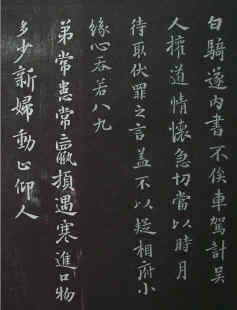 白騎遂內書不俟車駕計吴
人權道情懷急切當以時月
待取伏罪之言蓋不以疑相府小
緣心吞若八九
弟常患常羸頓遇寒進口物
多少新婦動止仰人